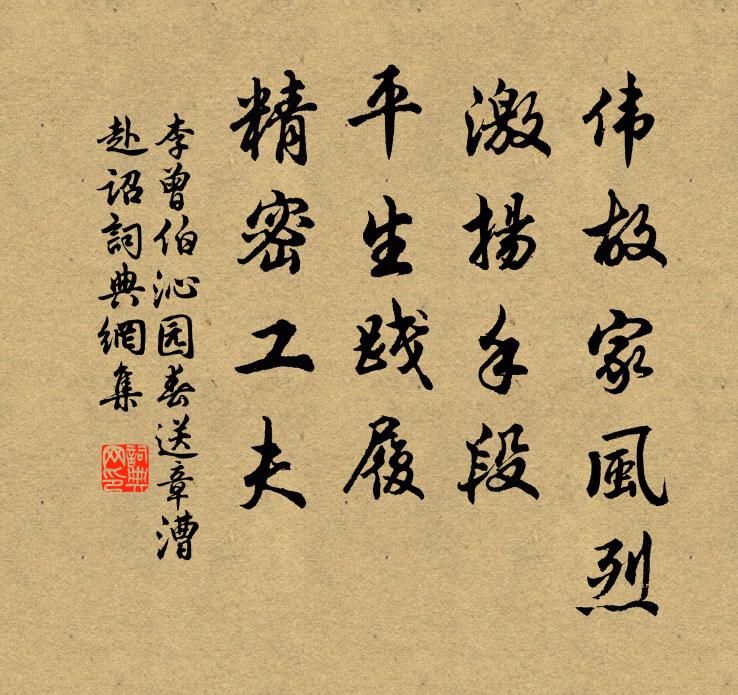 伟故家風烈
激揚手段
平生践履
精密工夫
李曾伯沁园春送章漕
赴诏詞典網集
詞典
网印